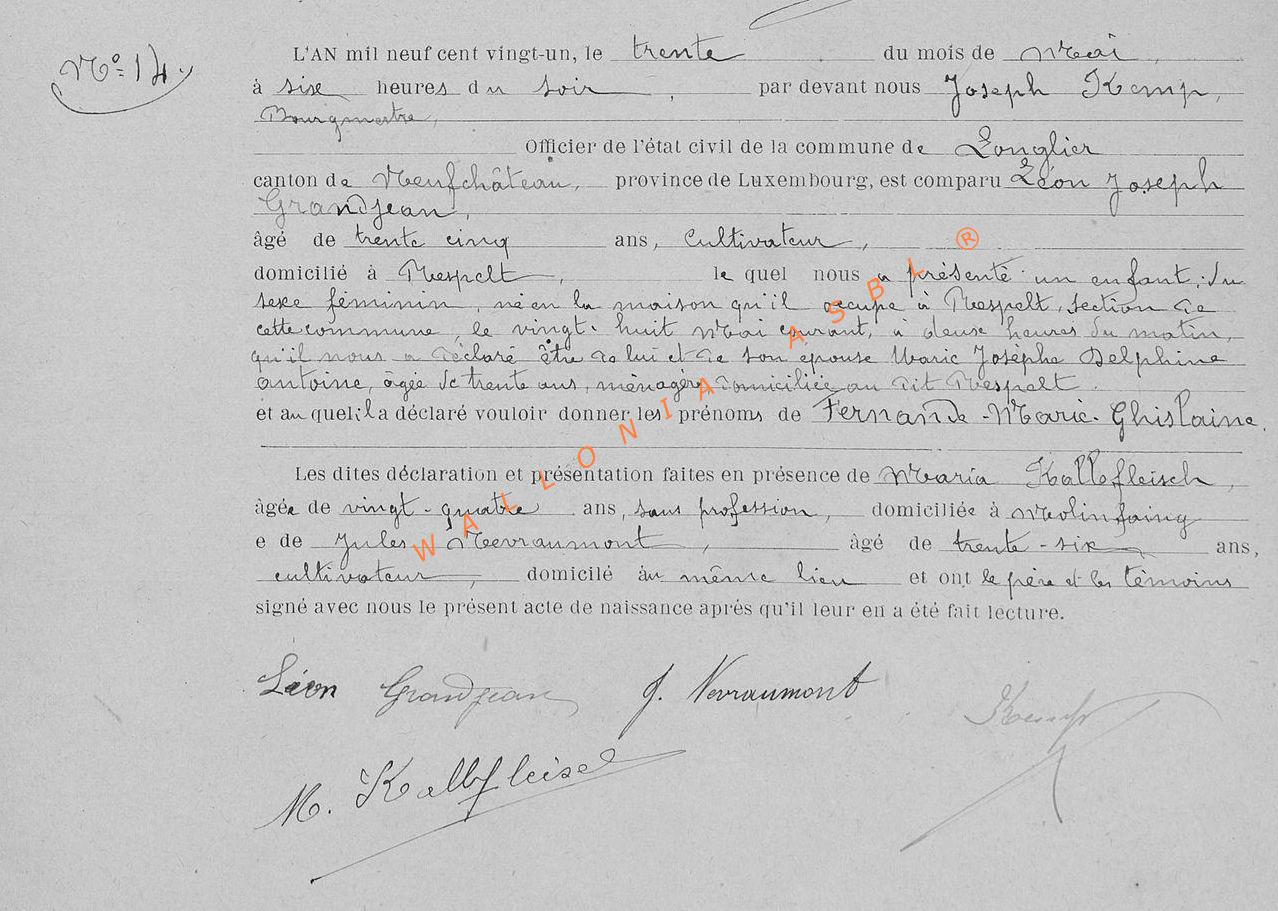 N°= 14.
L'AN mil neuf cent vingt-un, le trente du mois de Mai,
à six heures du soir, par devant nous Joseph Kemp,
Bourgmestre,
Officier de l'état civil de la commune de Longlier
canton de Neufchâteau, province de Luxembourg, est comparu Léon Joseph
Grandjean,
âgé de trente cinq ans, Cultivateur,
domicilié à Respelt, le quel nous a présenté un enfant du
sexe féminin, né en la maison qu'il occupe à Respelt, section de
cette commune, le vingt-huit Mai courant, à deux heures du matin,
qu'il nous a déclaré être de lui et de son épouse Marie Josèphe Delphine
Antoine, âgée de trente ans, ménagère domiciliée au dit Respelt.
et au quel il a déclaré vouloir donner les prénoms de Fernande-Marie-Ghislaine.
Les dites déclaration et présentation faites en présence de Maria Kallbfleisch,
âgée de vingt-quatre ans, sans profession, domiciliée à Molinfaing
e de Jules Nevraumont, âgé de trente-six ans,
cultivateur, domicilé au même lieu et ont le père et les témoins
signé avec nous le présent acte de naissance aprés qu'il leur en a été fait lecture.
Léon Grandjean J. Nevraumont Kemp
M. Kallbfleisch
WALLONIA ASBL ®